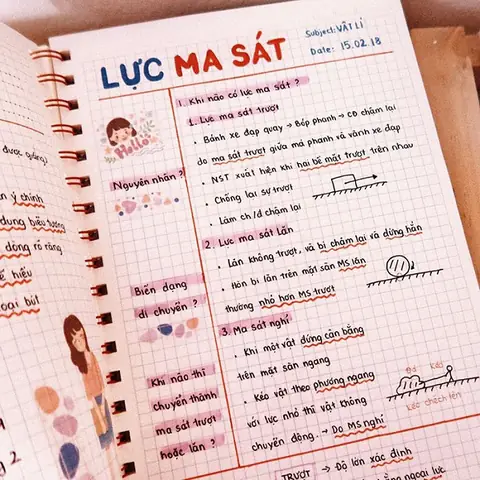 LỰC MA SÁT
Subject: VẬT LÍ
Date: 15.02.18
I. Khi nào có lực ma sát?
1. Lực ma sát trượt
• Bánh xe đạp quay → Bóp phanh → CĐ chậm lại
do ma sát trượt giữa má phanh và vành xe đạp
• NST xuất hiện khi hai bề mặt trượt trên nhau
• Chống lại sự trượt
• Làm ch/đ chậm lại
2. Lực ma sát lăn
• Lăn không trượt, vả bị chậm lại và dừng hẳn
• Hòn bi lăn trên mặt sân MS lăn
thường nhỏ hơn MS trượt
3. Ma sát nghỉ
• Khi một vật đứng cân bằng
trên mặt sân ngang
• Kéo vật theo phương ngang
với lực nhỏ thì vật không
chuyển động. → Do MS nghỉ
Kéo
Kéo chếch lên
TRƯỢT → Độ lớn xác định
bằng ngoại lực
Hello
Nguyên nhân?
Biến dạng
di chuyển?
Khi nào thì
chuyển thành
ma sát trượt
hoặc lăn?
được giảng)
ý chính
dung biểu tượng
dòng rõ ràng
hiểu
loại bút
2